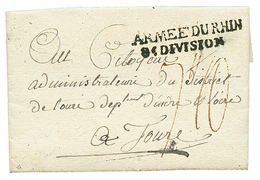 ARMEE DU RHIN
8e DIVISION
Aux Citoyens
administrateurs du District
de Tours dept d'indre et Loire
a Tours